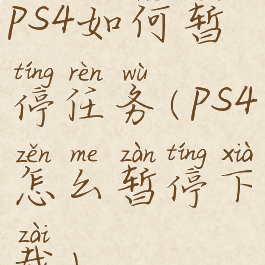 PS4如何暂
tíng rèn wù
停任务(PS4
zěn me zàn tíng xià
怎么暂停下
zài
载)